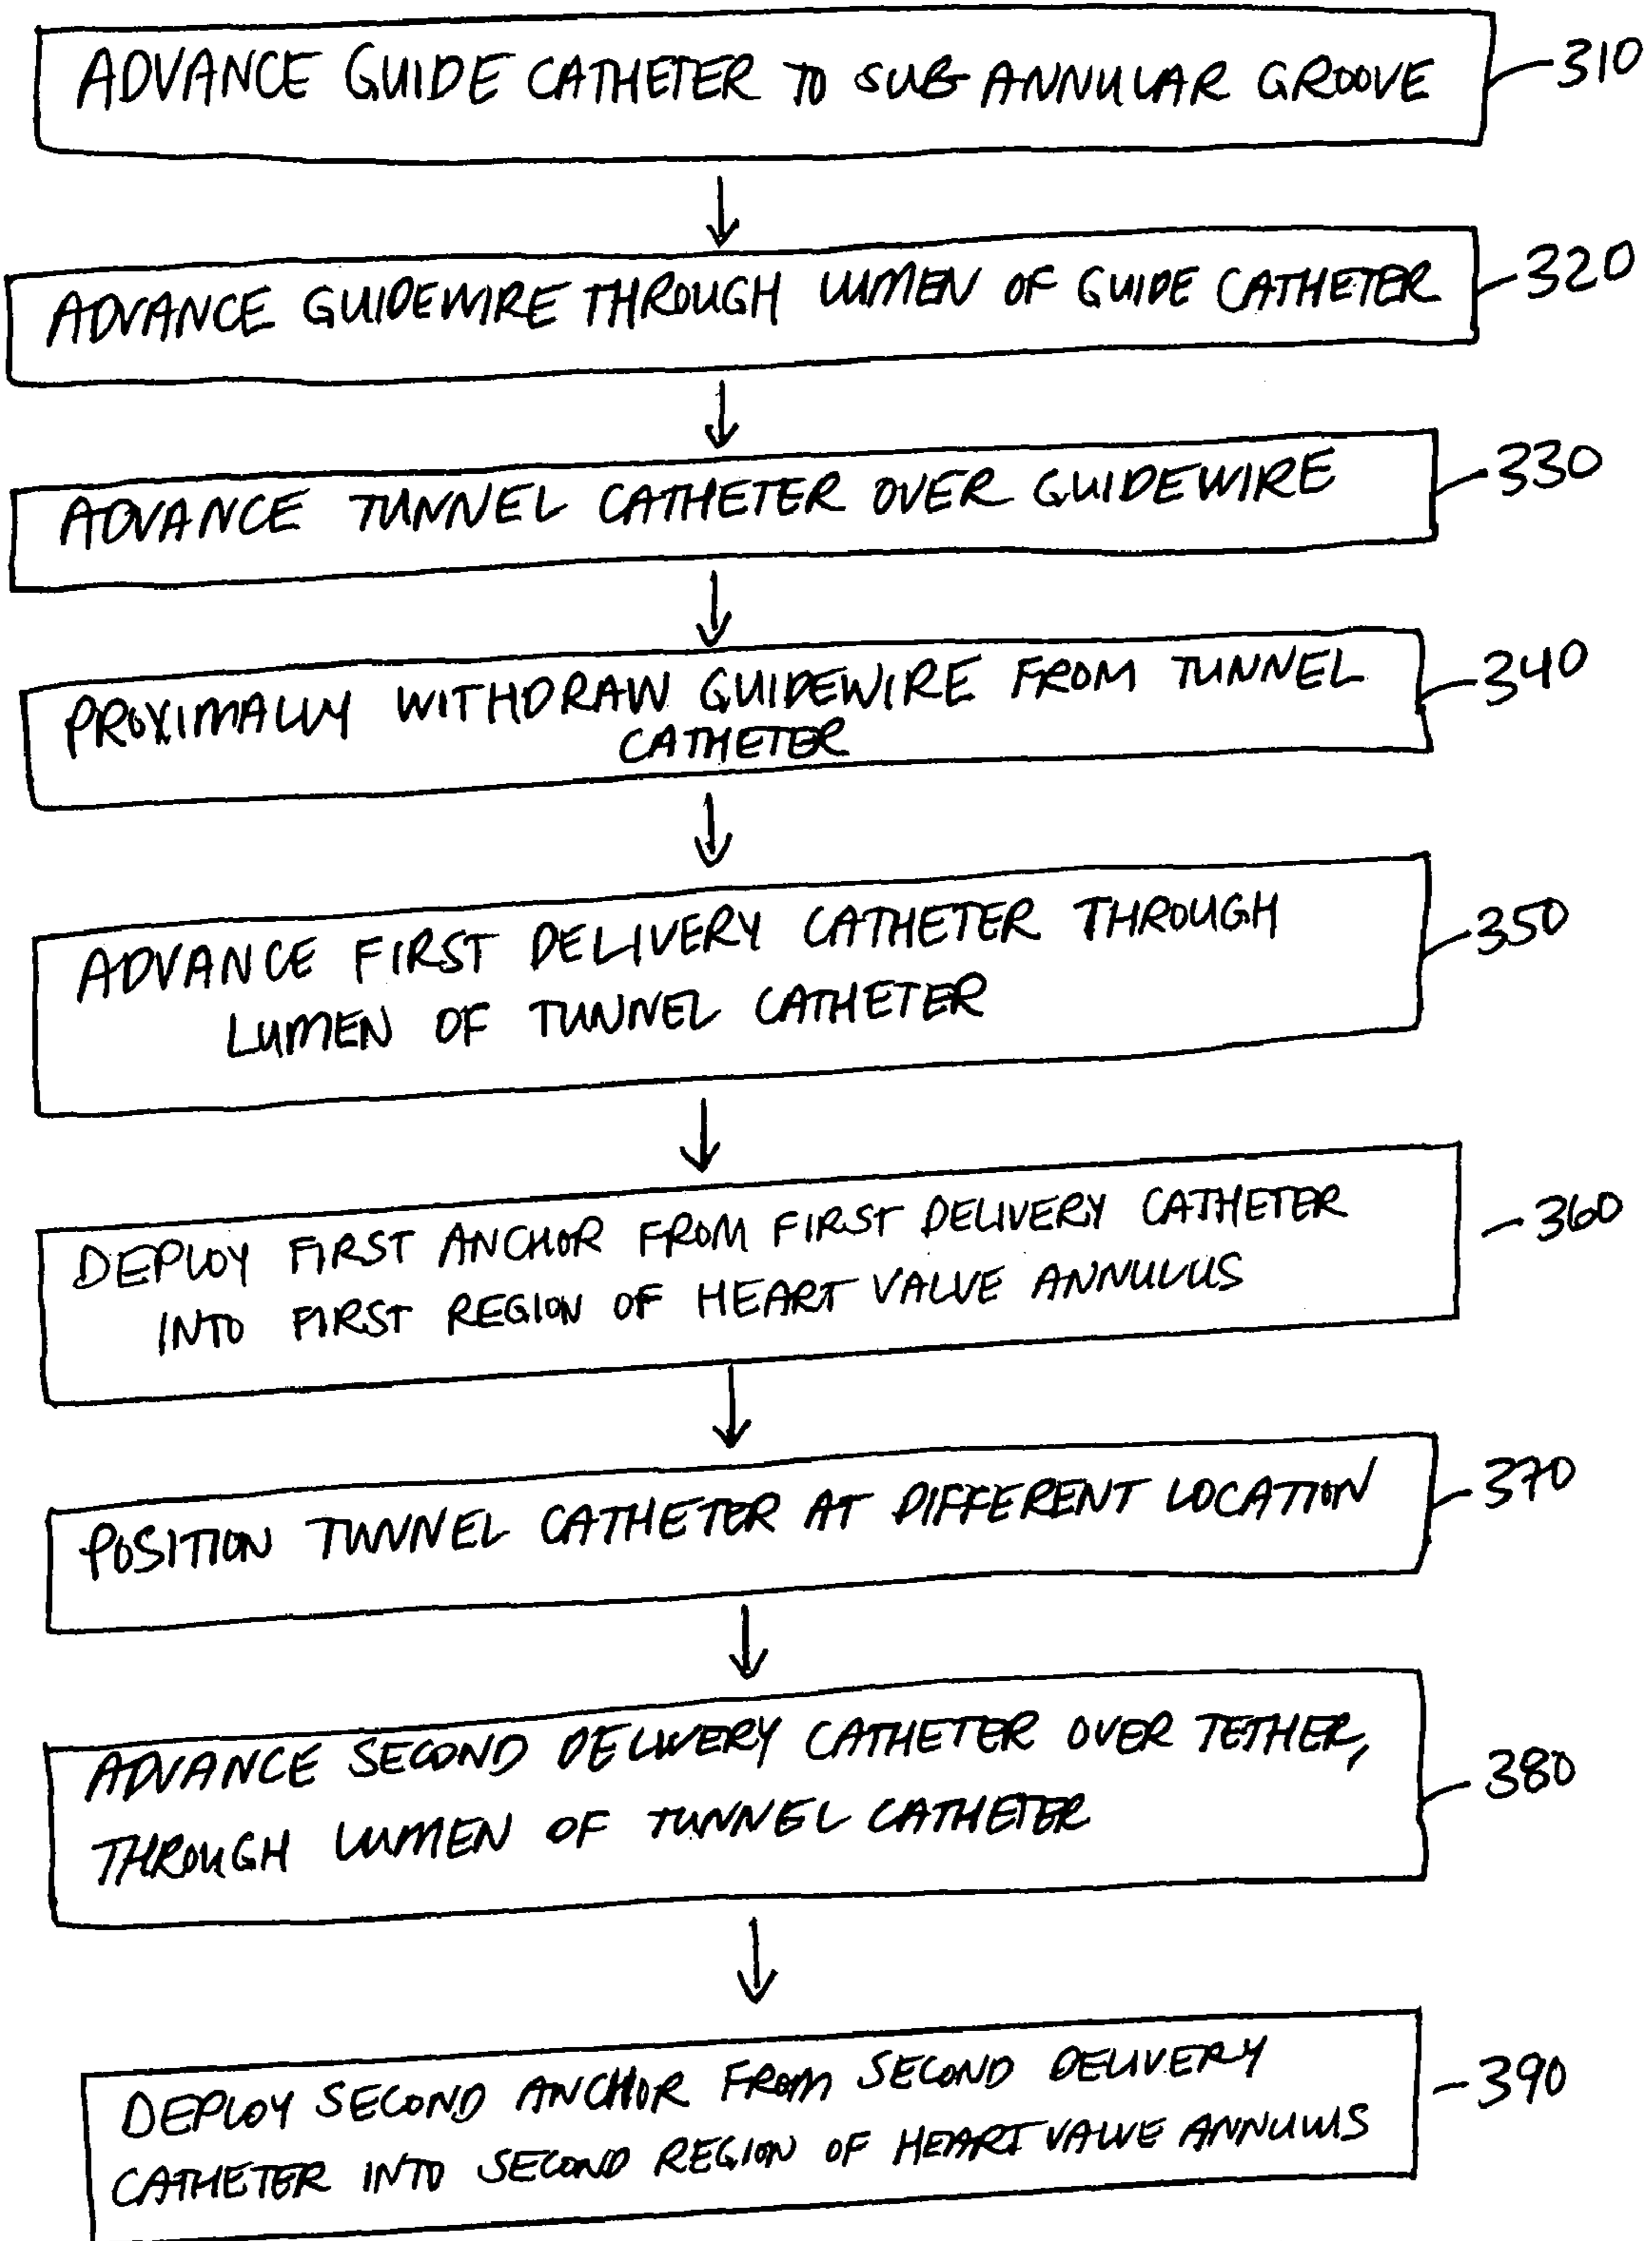 ADVANCE GUIDE CATHETER TO SUB ANNULAR GROOVE
310
ADVANCE GUIDEWIRE THROUGH LUMEN OF GUIDE CATHETER
320
ADVANCE TUNNEL CATHETER OVER GUIDEWIRE
330
PROXIMALLY WITHDRAW GUIDEWIRE FROM TUNNEL
CATHETER
340
ADVANCE FIRST DELIVERY CATHETER THROUGH
LUMEN OF TUNNEL CATHETER
350
DEPLOY FIRST ANCHOR FROM FIRST DELIVERY CATHETER
INTO FIRST REGION OF HEART VALVE ANNULUS
360
POSITION TUNNEL CATHETER AT DIFFERENT LOCATION
370
ADVANCE SECOND DELIVERY CATHETER OVER TETHER,
THROUGH LUMEN OF TUNNEL CATHETER
380
DEPLOY SECOND ANCHOR FROM SECOND DELIVERY
CATHETER INTO SECOND REGION OF HEART VALVE ANNULUS
390